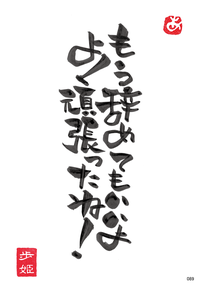 もう辞めてもいいよ
よく頑張ったね!
歩姫
089